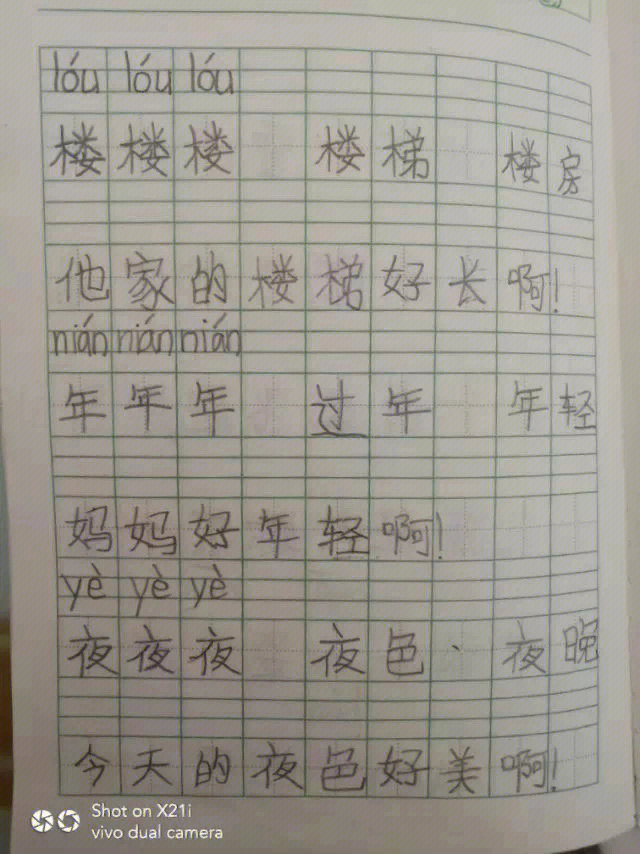 lóu lóu lóu
楼楼楼 楼梯 楼房
他家的楼梯好长啊!
nián nián nián
年年年 过年 年轻
妈妈好年轻啊!
yè yè yè
夜夜夜 夜色·夜晚
今天的夜色好美啊!
Shot on X21i
vivo dual camera